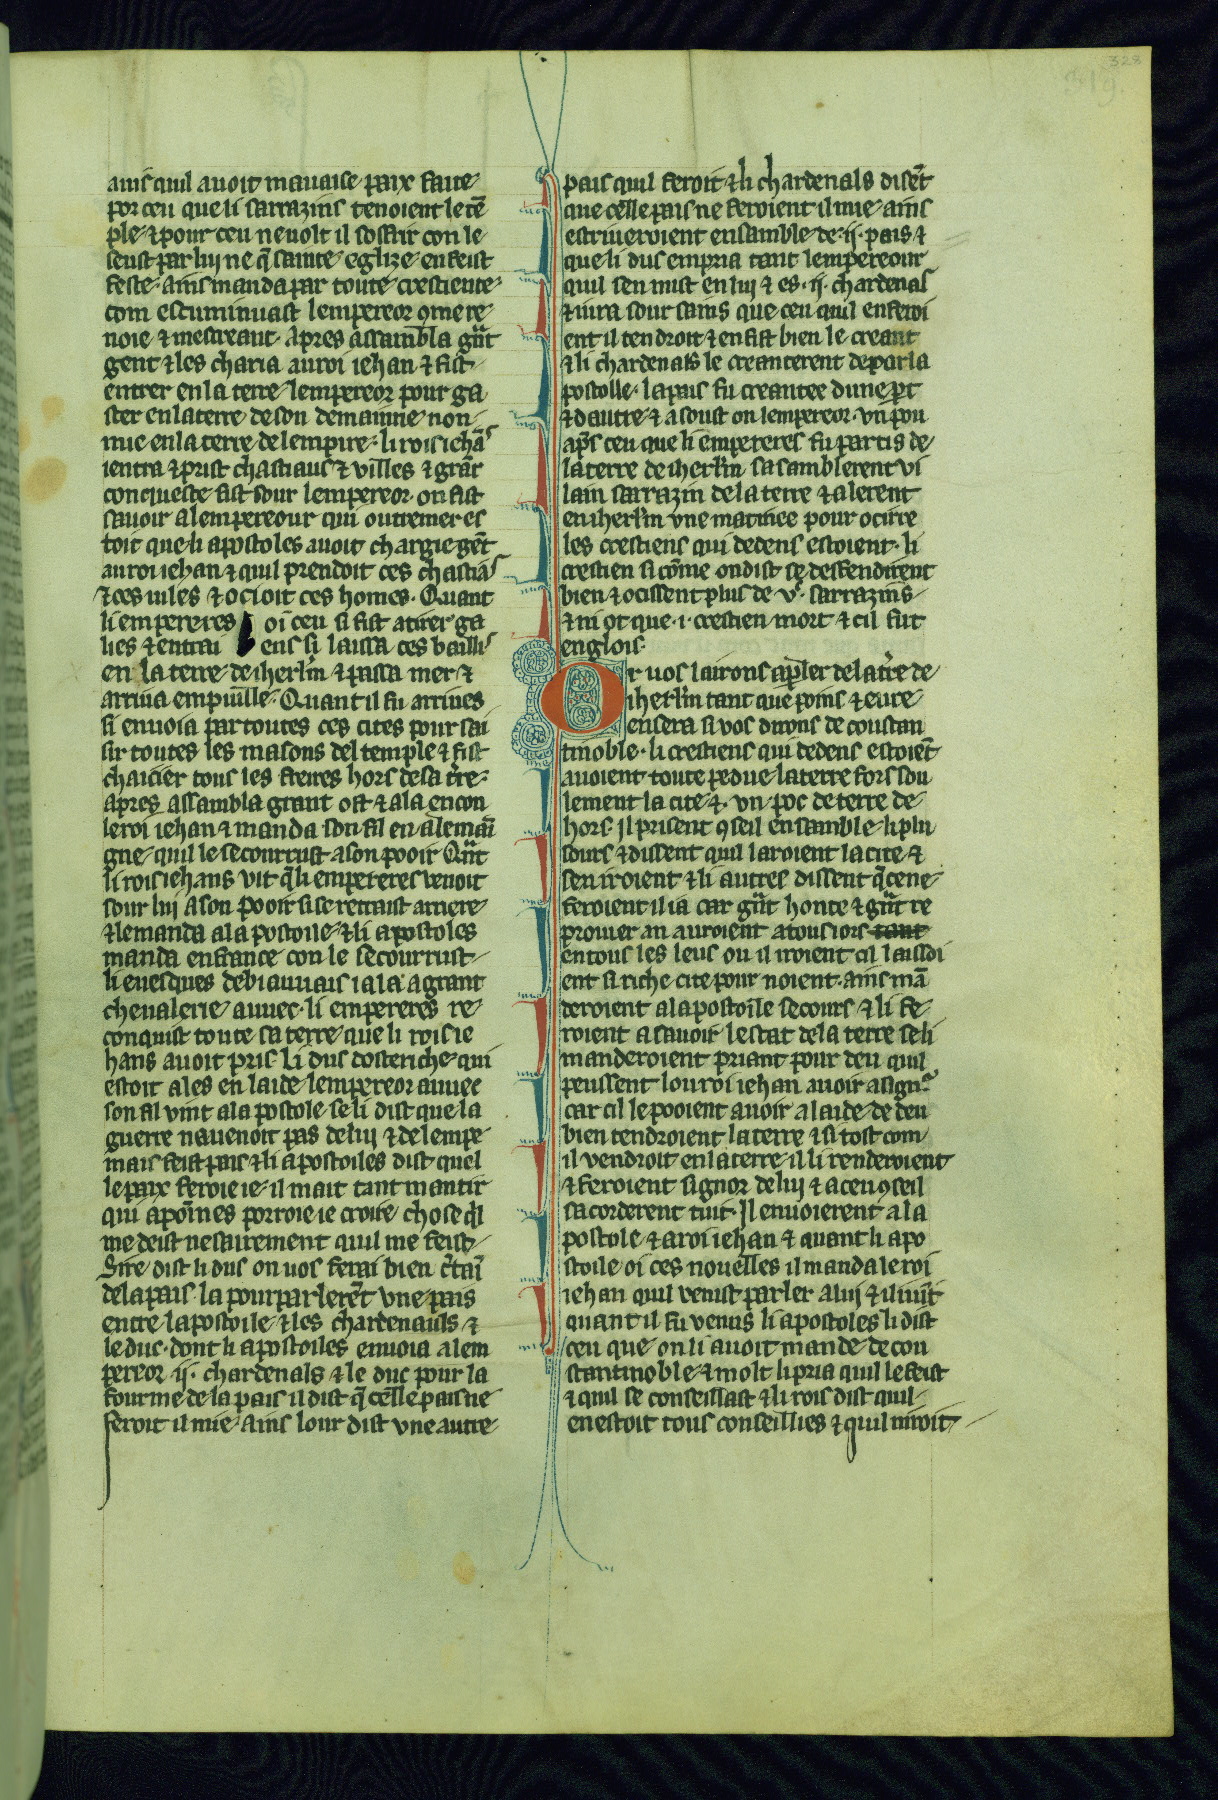 328
319
auis quil auoit mauaise paix faite
por ceu que li sarrazins tenoient le tē
ple ⁊ pour ceu ne uolt il soffrir con le
seust par luj ne q̄ sainte eglize en feist
feste ains manda par toute crestiente
com escuminuast lempereor ꝯme re
noie ⁊ mescreant. Apres assambla gūt
gent ⁊ les charia au roi iehan ⁊ fist
entrer en la terre lempereor pour ga
ster en la terre de son demainne non
mie en la terre de lempire. li rois iehās
i entra ⁊ prist chastiaus ⁊ villes ⁊ grāt
conqueste fist sour lempereor. on fist
sauoir a lempereour qui outremer es
toit que li apostoles auoit chargie gēt
au roi iehan ⁊ quil prendoit ces chastiaˢ
⁊ ces uiles ⁊ ocioit ces homes. Quant
li empereres oi ceu si fist atirer ga
lies ⁊ entrai ens si laissa ces baillis
en la terre de iherl̄m ⁊ passa mer ⁊
arriua em puille. Quant il fu arriues
si enuoia par toutes ces cites pour sai
sir toutes les maisons del temple ⁊ fist
chacier tous les freires hors de sa t̄re.
apres assambla grant ost ⁊ ala encon
le roi iehan ⁊ manda son fil en alemai
gne quil le secourrust a son pooir Qūt
li rois iehans vit q̄ li empereres venoit
sour luj a son pooir si se retraist arriere
⁊ le manda a la postoile ⁊ li apostoles
manda en france con le secourrust
li euesques de biauuais i ala a grant
cheualerie auuec. li empereres re
conquist toute sa terre que li rois ie
hans auoit pris Li dus dosteriche qui
estoit ales en laide lempereor auuec
son fil vint a la postole se li dist que la
guerre nauenoit pas de luj ⁊ de lempe
mais feist pais ⁊ li apostoiles dist quel
le paix feroie ie il mait tant mantir
qui a poīnes porroie ie croire chose ql
me deist ne sairement quil me feist
Sire dist li dus on uos ferai bien c̄taī
de la pais la pourparlerēt vne pais
entre lapostoile ⁊ les chardenauls ⁊
le duc. dont li apostoiles enuoia a lem
pereor .ij. chardenals ⁊ le duc pour la
fourme de la pais il dist q̄ celle pais ne
feroit il mie ains lour dist vne autre
pais quil feroit ⁊ li chardenals disēt
que celle pais ne feroient il mie ains
estriueroient ensamble de .ij. pais ⁊
que li dus empria tant lempereour
quil sen mist en luj ⁊ es .ij. chardenas
⁊ iura sour sains que ceu quil en feroi
ent il tendroit ⁊ en fist bien le creant
⁊ li chardenals le creanterent depar la
postolle. la pais fu creantee dune p̄t
⁊ dautre ⁊ a soust on lempereor. vn pou
ap̄s ceu que li empereres fu partis de
la terre de iherl̄m sasamblerent vi
lain sarrazin de la terre ⁊ alerent
en iherl̄m vne matinee pour ocirre
les crestiens qui dedens estoient. li
crestien si cōme on dist se desfendirent
bien ⁊ ocissent plus de .v.ᶜ sarrazins
⁊ ni ot que .i. crestien mort ⁊ cil fut
englois.
Or uos lairons ap̄ler de la t̄re de
iherl̄m tant que poins ⁊ eure
en sera si vos dirons de coustan
tinoble. li crestiens qui dedens estoiēt
auoient toute perdue la terre fors sou
lement la cite ⁊. vn poc de terre de
hors. Jl prisent ꝯseil ensamble li plu
sours ⁊ dissent quil lairoient la cite ⁊
sen iroient ⁊ li autres dissent q̄ ce ne
feroient il ia car gūt honte ⁊ gūt re
prouier an auroient a tous iors tant
en tous les leus ou il iroient cil laissoi
ent si riche cite pour noient. ains mā
deroient a la postoile secours ⁊ li fe
roient a sauoir lestat de la terre se li
manderoient priant pour deu quil
peussent lou roi iehan auoir a signʳ
car cil le pooient auoir a laide de deu
bien tendroient la terre ⁊ si tost com
il vendroit en la terre il li renderoient
⁊ feroient signor de luj ⁊ a ceu ꝯseil
sacorderent tuit. Jl enuoierent a la
postole ⁊ a roi iehan ⁊ quant li apo
stoile oi ces nouelles il manda le roi
iehan quil venist parler a luj ⁊ il i uīt
quant il fu venus li apostoles li dist
ceu que on li auoit mande de con
stantinoble ⁊ molt li pria quil le feist
⁊ quil se conseillast ⁊ li rois dist quil
en estoit tous conseillies ⁊ quil niroit